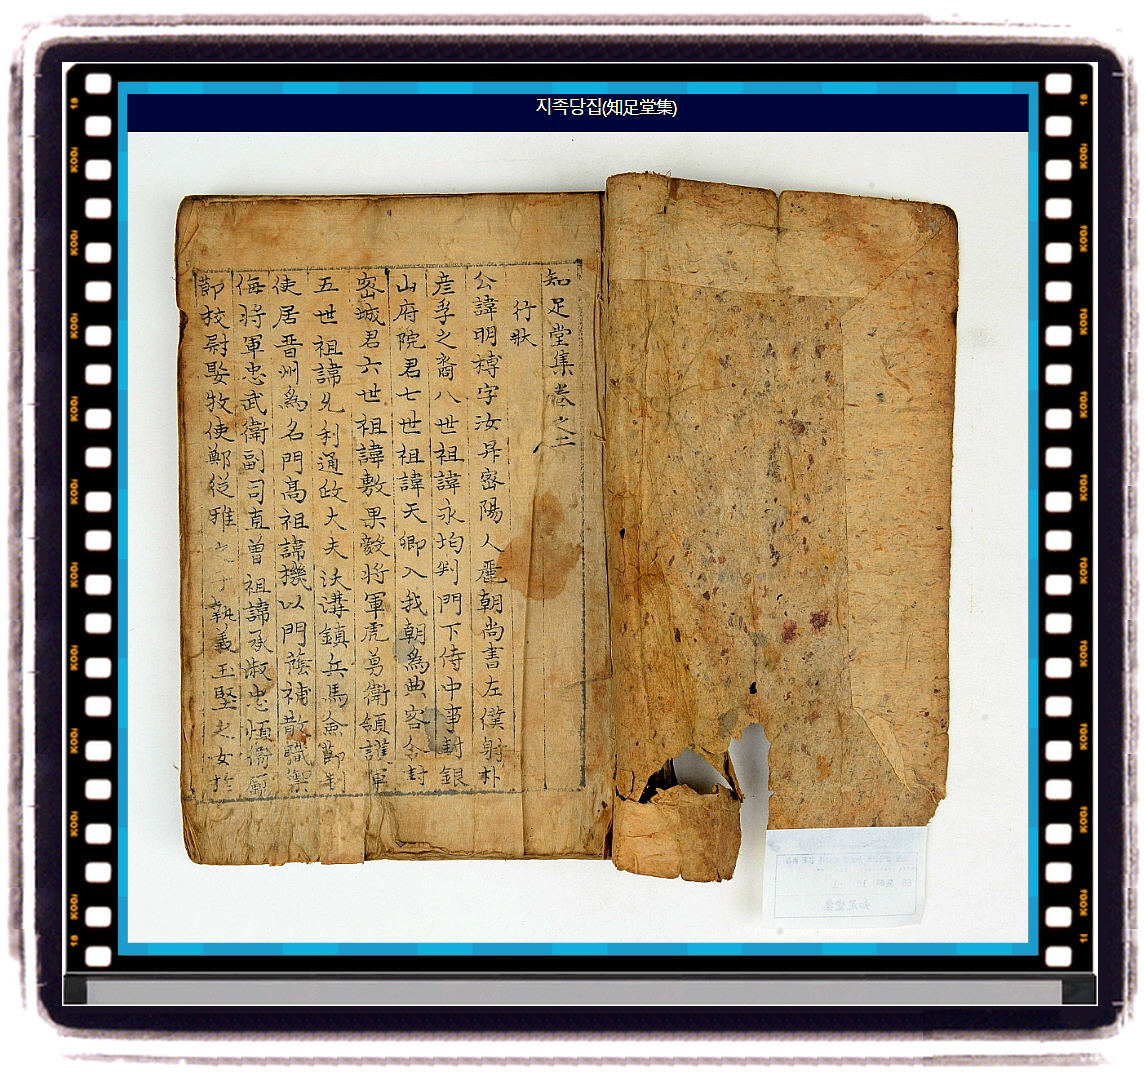 지족당집(知足堂集)
知足堂集卷之二
行狀
公諱明榑字汝昇密陽人麗朝尚書左僕射朴
彦孚之裔八世祖諱永均判門下侍中事封銀
山府院君七世祖諱天卿入我朝爲典客令封
密城君六世祖諱敷果毅將軍虎勇衛領護軍
五世祖諱允利通政大夫沃溝鎭兵馬僉節制
使居晋州爲名門高祖諱機以門蔭補散職禦
侮將軍忠武衛副司直曾祖諱承淑忠順衛
節校尉娶牧使鄭從雅之子執義玉堅之女於
知足堂集